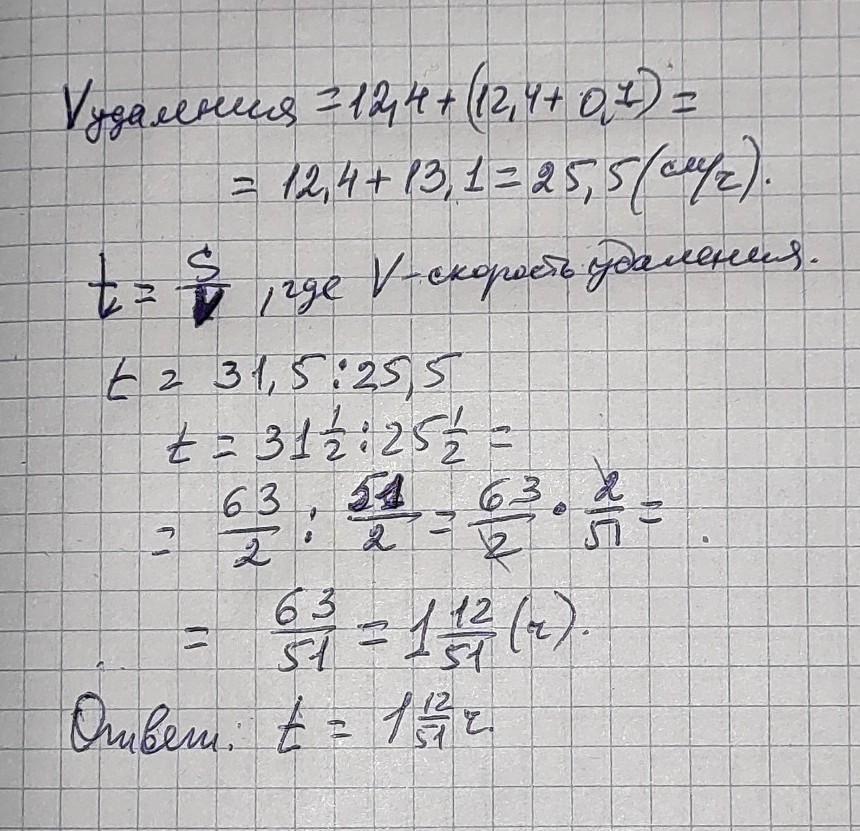 Vудаления = 12,4 + (12,4 + 0,7) =
= 12,4 + 13,1 = 25,5 (см/ч).
t = S/V, где V - скорость удаления.
t = 31,5 : 25,5
t = 31 1/2 : 25 1/2 =
= 63/2 : 51/2 = 63/2 · 2/51 =
= 63/51 = 1 12/51 (ч).
Ответ: t = 1 12/51 ч.